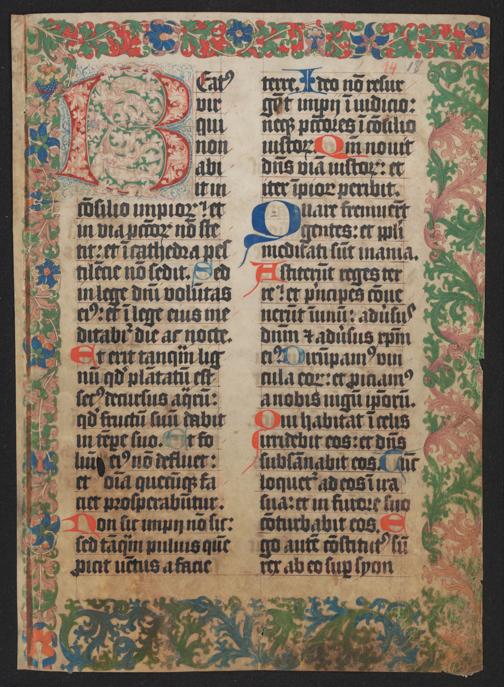 14 18
Beatꝰ
vir
qui
non
abi
it in
cōsilio impiorꝝ: et
in via pctorꝝ nō ste
tit: et ī cathedra pes
tilēcie nō sedit. Sed
in lege dni volūtas
eiꝰ: et ī lege eius me
ditabiᷣ die ac nocte.
Et erit tanqm̄ lig
nū qd̓ plātatū est
secꝰ decursus aq̄rū:
qd̓ fructū suū dabit
in tēpe suo. Et fo
liū eiꝰ nō defluet:
et oīa quecūqꝫ fa
ciet prosperabūtur.
Non sic impij nō sic:
sed tāqm̄ puluis quē
ꝓicit vētus a facie
terre. Ideo nō resur
gēt impij ī iudicio:
neqꝫ pctōres ī cōsilio
iustorꝝ. Qm̄ nouit
dn̄s viā iustorꝝ: et
iter īpiorꝝ peribit.
Quare fremuerūt
gentes: et ppli
meditati sūt inania.
Astiterūt reges ter
re: et pncipes cōue
nerūt ī unū: aduꝰsꝰ
dnm̄ ⁊ aduꝰsus xpm̄
eiꝰ Dirūpamꝰ vin
cula eorꝝ: et ꝓiciamꝰ
a nobis iugū ipoꝝ.
Qui habitat ī celis
irridebit eos: et dn̄s
subsānabit eos. Tūc
loquetᷣ ad eos ī ira
sua: et in furore suo
cōturbabit eos. E
go autē cōstitutꝰ sū
rex ab eo sup syon